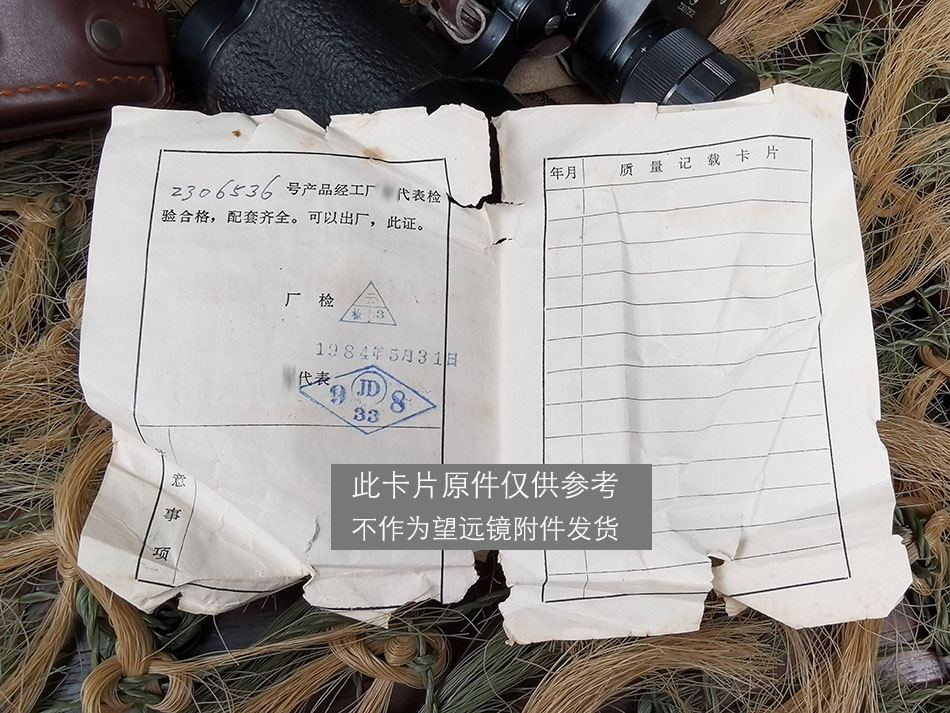 2306536 号产品经工厂 代表检
验合格，配套齐全。可以出厂，此证。
厂 检
检 3
1984年5月31日
代表
9 JD 8
33
意
事
项
年月 质量记载卡片
此卡片原件仅供参考
不作为望远镜附件发货